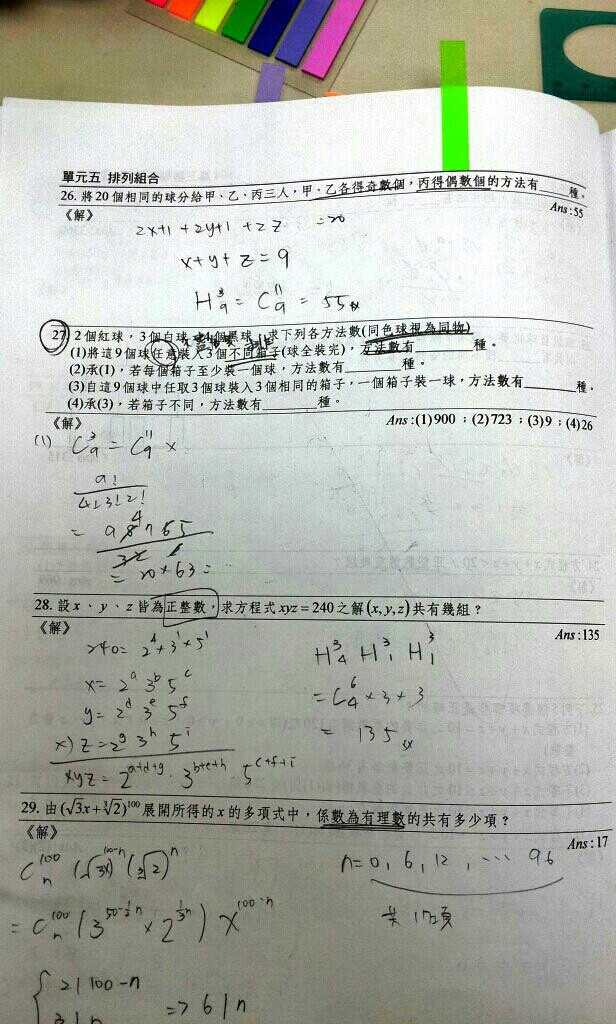 單元五 排列組合
26. 將20個相同的球分給甲、乙、丙三人，甲、乙各得奇數個，丙得偶數個的方法有____種。
《解》
Ans : 55
2x+1 + 2y+1 + 2z = 20
x+y+z = 9
H³₉ = C¹¹₉ = 55
27. 2個紅球，3個白球，4個黑球，求下列各方法數(同色球視為同物)
(1)將這9個球任意裝入3個不同箱子(球全裝完)，方法數有____種。
(2)承(1)，若每個箱子至少裝一個球，方法數有____種。
(3)自這9個球中任取3個球裝入3個相同的箱子，一個箱子裝一球，方法數有____種。
(4)承(3)，若箱子不同，方法數有____種。
《解》
Ans : (1)900；(2)723；(3)9；(4)26
(1) C³₉ = C¹¹₉ ×
9!
4!3!2!
= 98765
32
= 20×63 =
28. 設x、y、z皆為正整數，求方程式xyz＝240之解(x, y, z)共有幾組？
《解》
Ans : 135
240 = 2⁴+3¹×5¹
x = 2ᵃ 3ᵇ 5ᶜ
y = 2ᵈ 3ᵉ 5ᶠ
x) z = 2ᵍ 3ʰ 5ⁱ
xyz = 2ᵃ⁺ᵈ⁺ᵍ · 3ᵇ⁺ᵉ⁺ʰ 5ᶜ⁺ᶠ⁺ⁱ
H³₄ H³₁ H³₁
= C⁶₄ × 3 × 3
= 135
29. 由(√3x＋∛2)¹⁰⁰展開所得的x的多項式中，係數為有理數的共有多少項？
《解》
Ans : 17
C¹⁰⁰ₙ (√3x)¹⁰⁰⁻ⁿ (∛2)ⁿ
= C¹⁰⁰ₙ (3^(50-½n) × 2^(⅓n)) x¹⁰⁰⁻ⁿ
{ 2 | 100-n
3 | n
=> 6 | n
n = 0, 6, 12, … 96
共17項